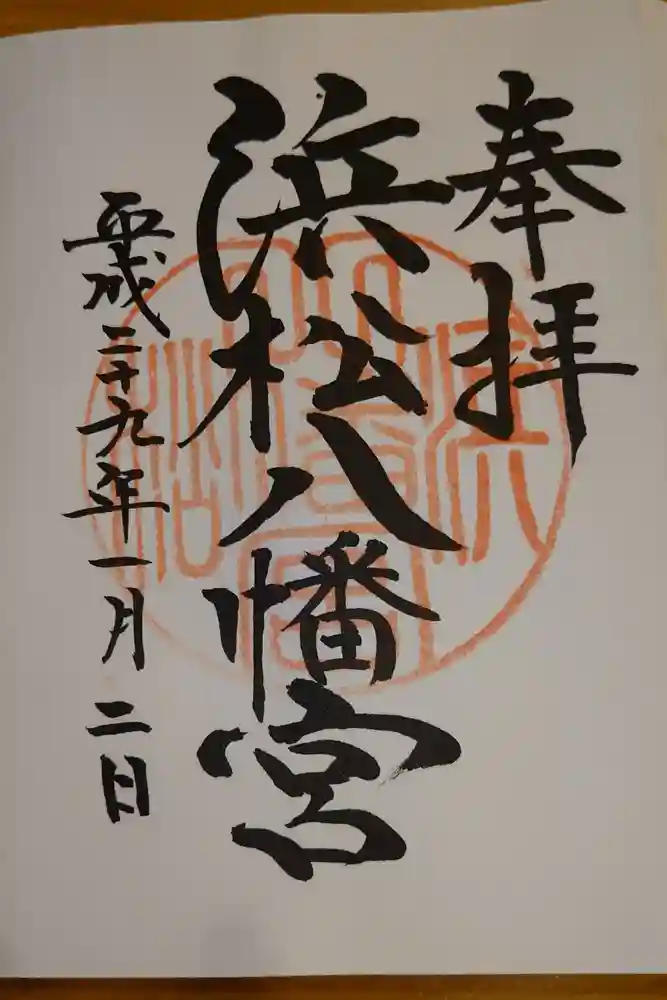 奉拝
浜松八幡宮
平成二十九年一月二日